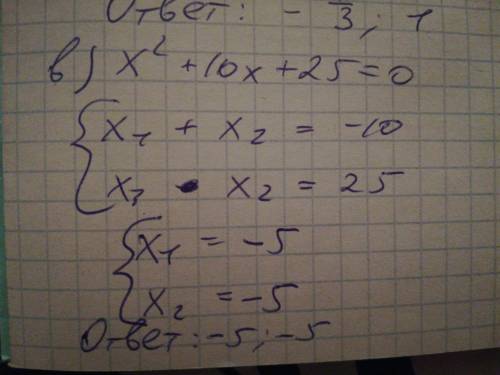 Ответ: - 3; 1
в) x² + 10x + 25 = 0
{ x₁ + x₂ = -10
x₁ • x₂ = 25
{ x₁ = -5
x₂ = -5
Ответ: -5; -5